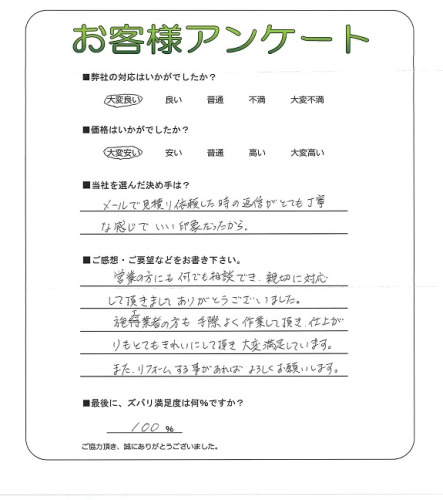 お客様アンケート
■弊社の対応はいかがでしたか？
大変良い 良い 普通 不満 大変不満
■価格はいかがでしたか？
大変安い 安い 普通 高い 大変高い
■当社を選んだ決め手は？
メールで見積り依頼した時の返信がとても丁寧
な感じでいい印象だったから。
■ご感想・ご要望などをお書き下さい。
営業の方にも何でも相談でき、親切に対応
して頂きましてありがとうございました。
施工業者の方も手際よく作業して頂き、仕上が
りもとてもきれいにして頂き大変満足しています。
また、リフォームする事があればよろしくお願いします。
■最後に、ズバリ満足度は何％ですか？
100 ％
ご協力頂き、誠にありがとうございました。